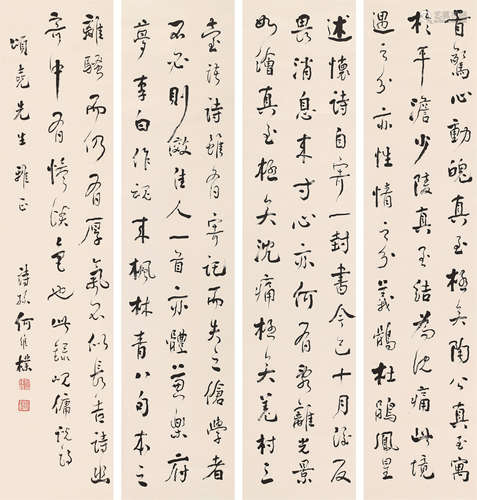 首驚心動魄真至極矣陶公真至寓
於平澹少陵真至結為沈痛此境
遇之分亦性情之分義鶻杜鵑鳳皇
述懷詩自寄一封書今已十月後反
畏消息來寸心亦何有亂離光景
如繪真至極矣沈痛極矣羌村三
臺諸詩雖有寄託而失之傖學者
不必則效佳人一首亦體兼樂府
夢李白作魂來楓林青八句本之
離騷而仍有厚氣不似長吉詩幽
奇中有慘淡之色也此錄峴傭說詩
頌堯先生雅正
詩孫何維樸